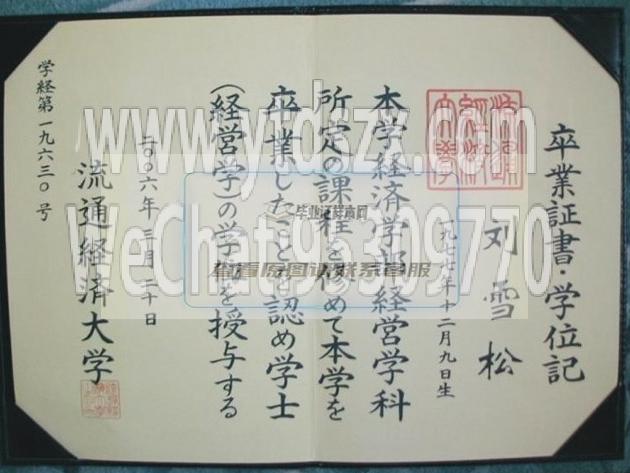 卒業証書・学位記
刘雪松
一九七七年十二月九日生
本学経済学部経営学科
所定の課程を修めて本学を
卒業したことを認め学士
(経営学)の学位を授与する
二〇〇六年三月二十日
流通経済大学
学経第一九六三〇号
www.yjdszx.com
WeChat95309770
毕业证样本网
查看原图请联系客服